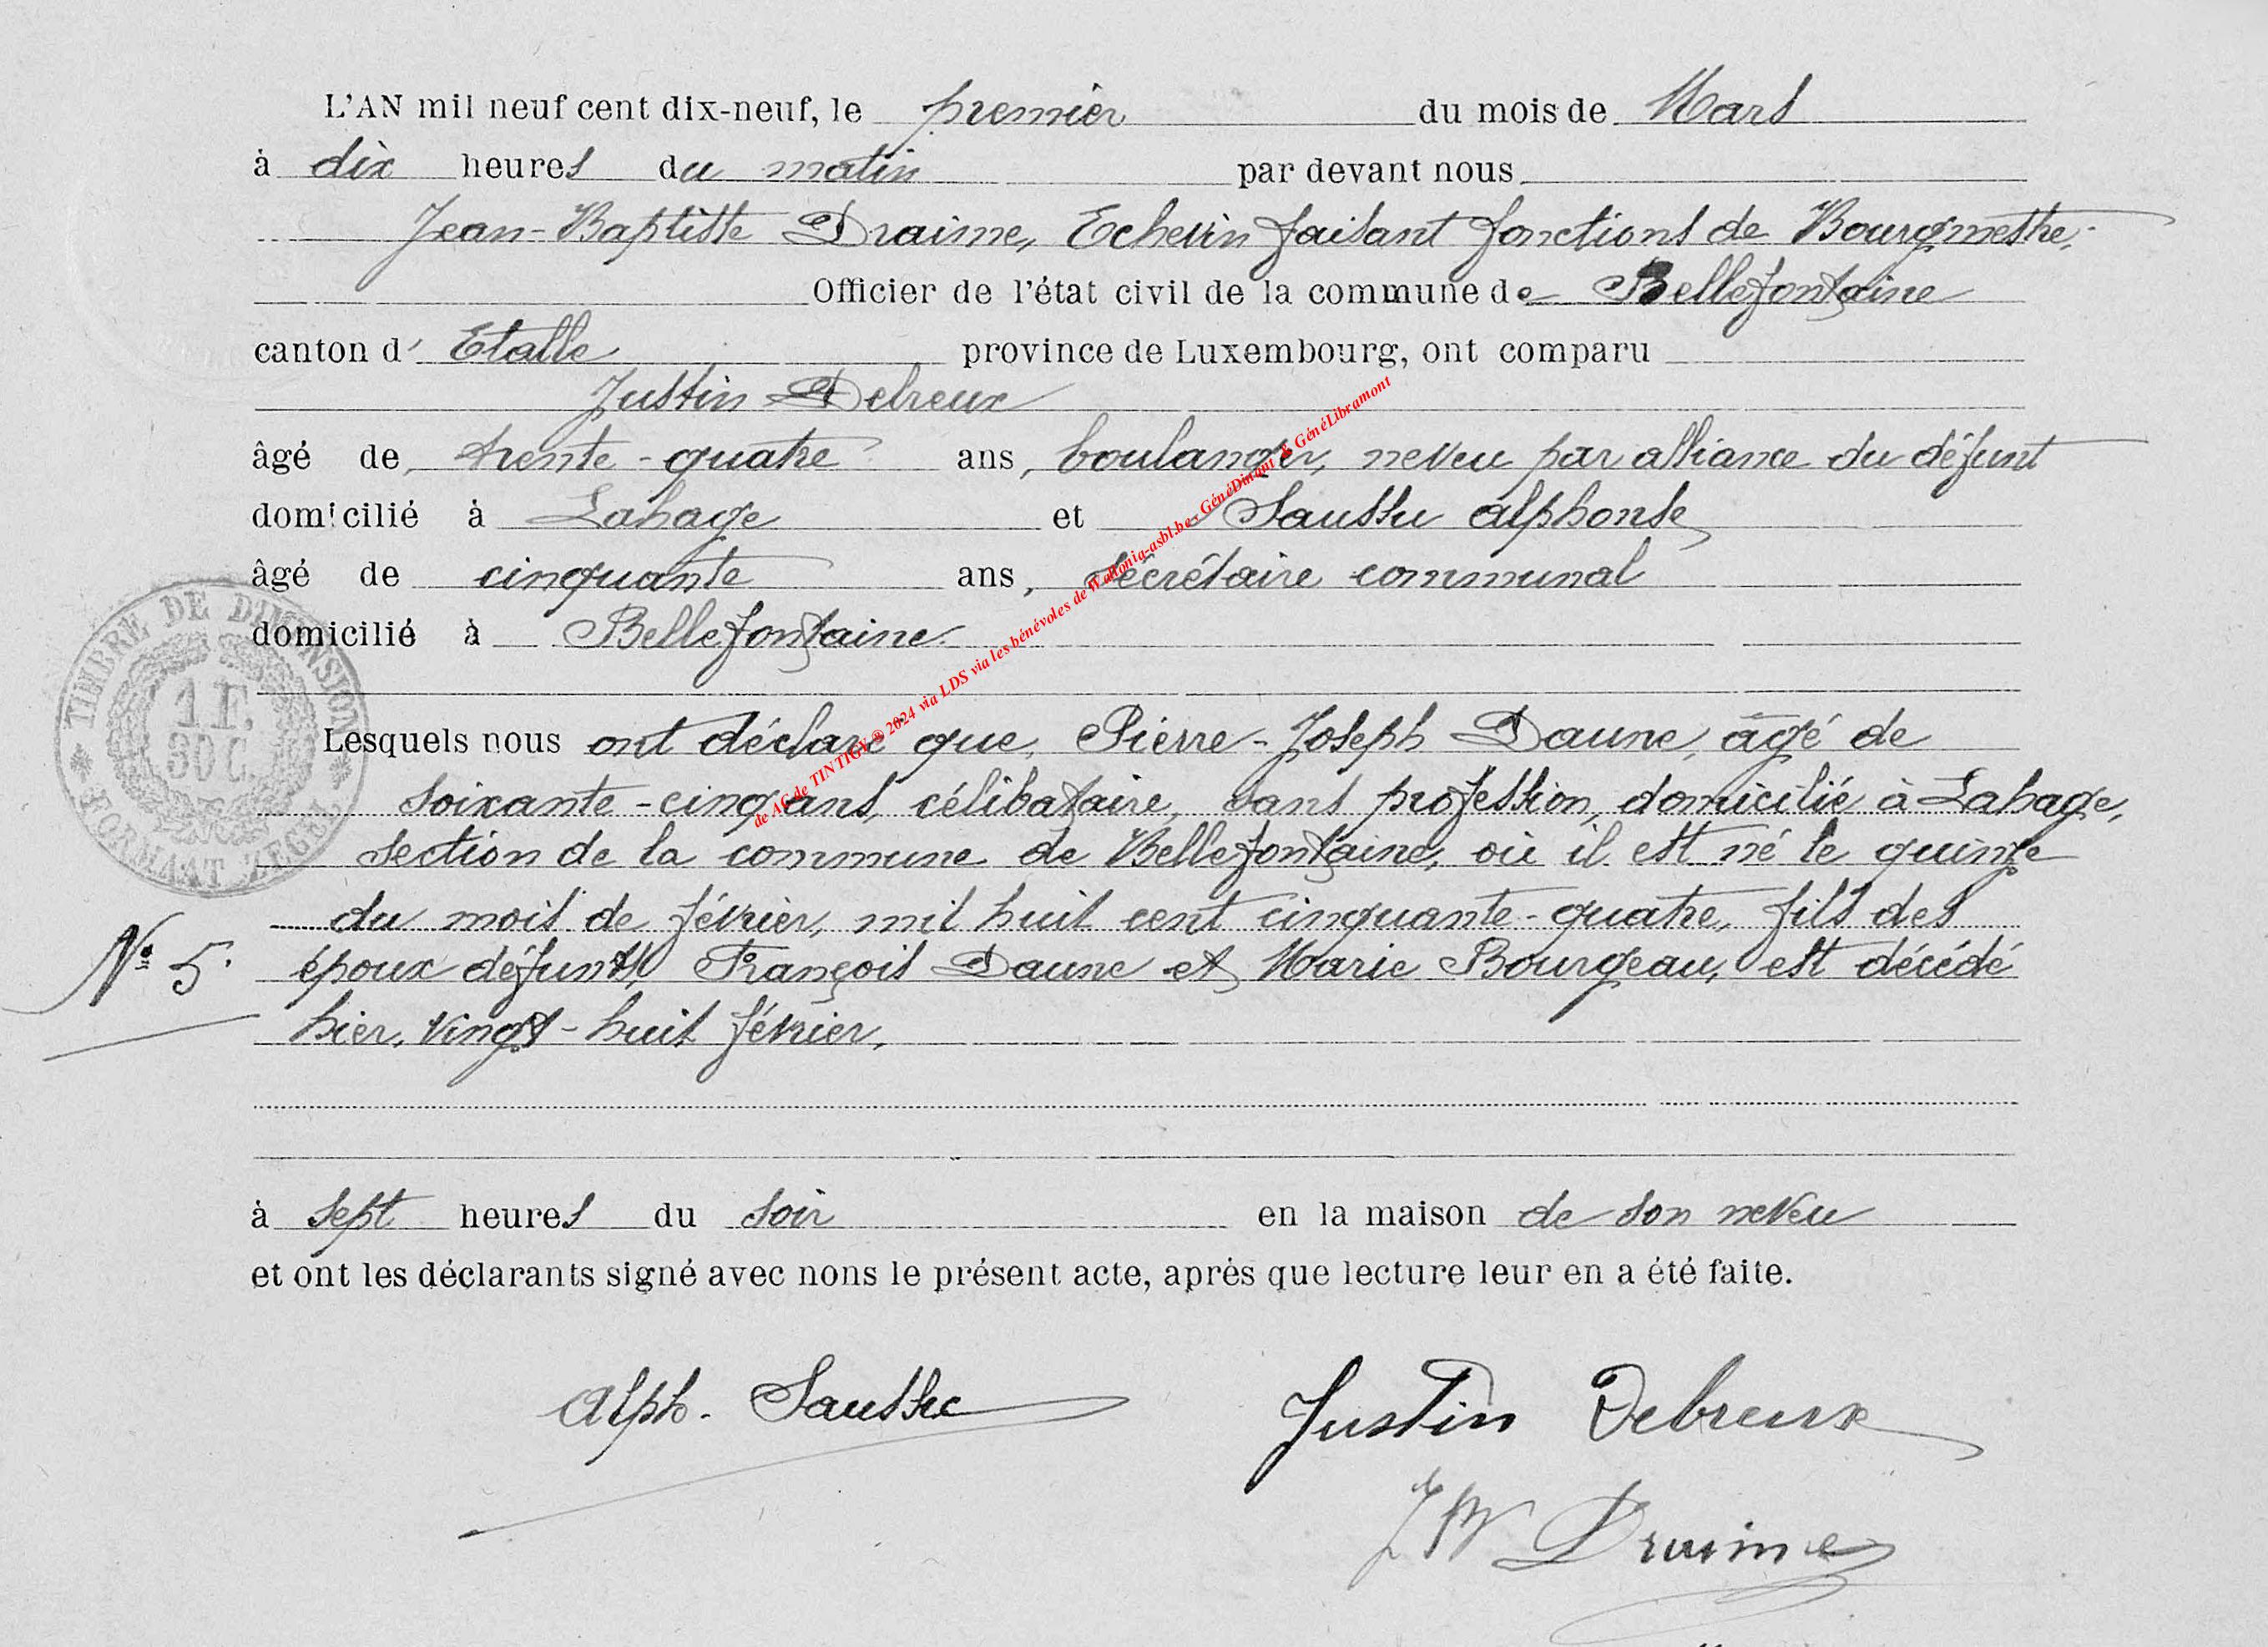 L'AN mil neuf cent dix-neuf, le premier du mois de Mars
à dix heures du matin par devant nous
Jean-Baptiste Draime, Echevin faisant fonctions de Bourgmestre,
Officier de l'état civil de la commune de Bellefontaine
canton d' Etalle province de Luxembourg, ont comparu
Justin Debreux
âgé de trente-quatre ans, boulanger, neveu par alliance du défunt
domicilié à Lahage et Saussu alphonse
âgé de cinquante ans, secrétaire communal
domicilié à Bellefontaine
TIMBRE DE DIMENSION
1 F.
30 C.
FORMAAT ZEGEL
Lesquels nous ont déclaré que, Pierre-Joseph Daune, âgé de
soixante-cinq ans, célibataire, sans profession, domicilié à Lahage,
section de la commune de Bellefontaine, où il est né le quinze
du mois de février, mil huit cent cinquante-quatre, fils des
N° 5. époux défunts, François Daune et Marie Bourgeau, est décédé
hier, vingt-huit février,
à sept heures du soir en la maison de son neveu
et ont les déclarants signé avec nons le présent acte, après que lecture leur en a été faite.
Alph. Saussu Justin Debreux
JB Draime
de AC de TINTIGY ® 2024 via LDS via les bénévoles de Wallonia-asbl.be - GénéDinant & GénéLibramont